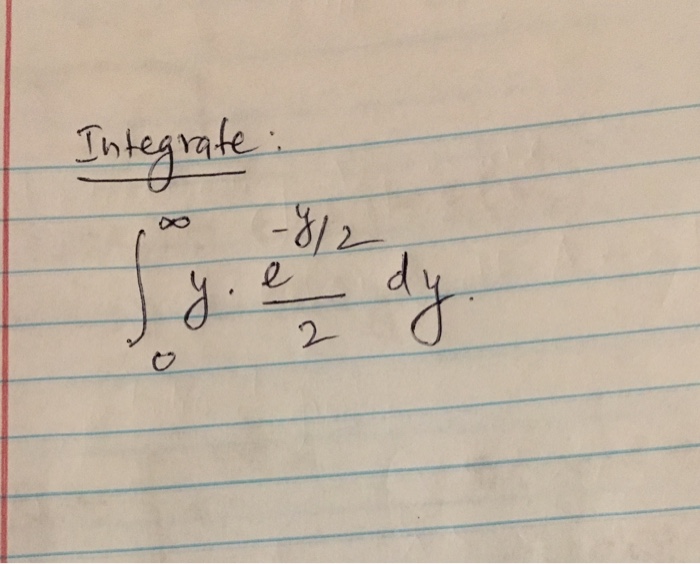 Integrate:
∫₀^∞ y · e^(-y/2)/2 dy.